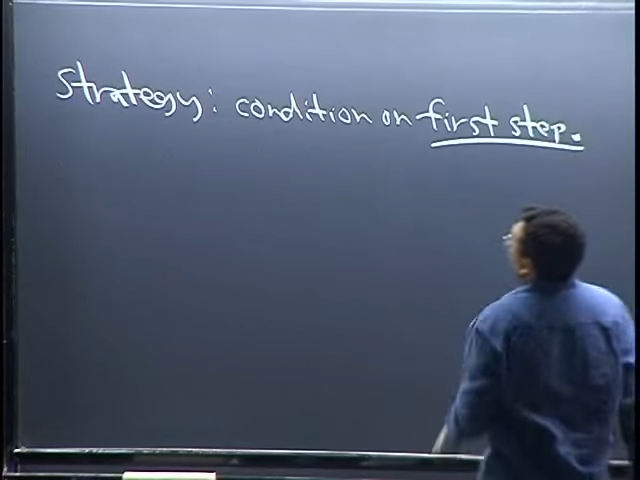 Strategy: condition on first step.